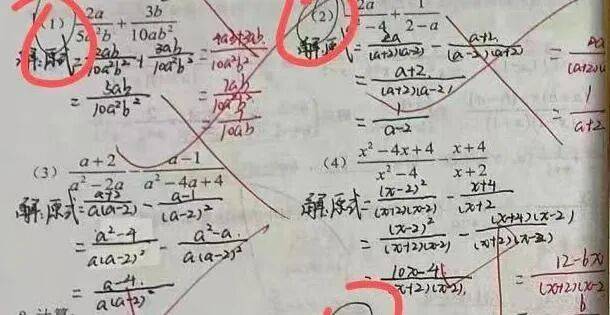 (1) 2a/5a²b + 3b/10ab²
解:原式 = 2ab/10a²b² + 3ab/10a²b² = 4ab+3ab/10a²b²
= 5ab/10a²b² = 7ab/10a²b²
= 7/10ab
(2) 2a/a²-4 + 1/2-a
解:原式 = 2a/(a+2)(a-2) - a+2/(a-2)(a+2) = 2a/(a+2)(
= a+2/(a+2)(a-2) = 1/a+2
= 1/a-2
(3) a+2/a²-2a - a-1/a²-4a+4
解:原式 = a+2/a(a-2) - a-1/(a-2)²
= a²-4/a(a-2)² - a²-a/a(a-2)²
= a-4/a(a-2)²
(4) x²-4x+4/x²-4 - x+4/x+2
解:原式 = (x-2)²/(x+2)(x-2) - x+4/x+2
= (x-2)²/(x+2)(x-2) - (x+4)(x-2)/(x+2)(x-2)
= 10x-4/(x+2)(x-2) = 12-6x/(x+2)(x-2
= 6